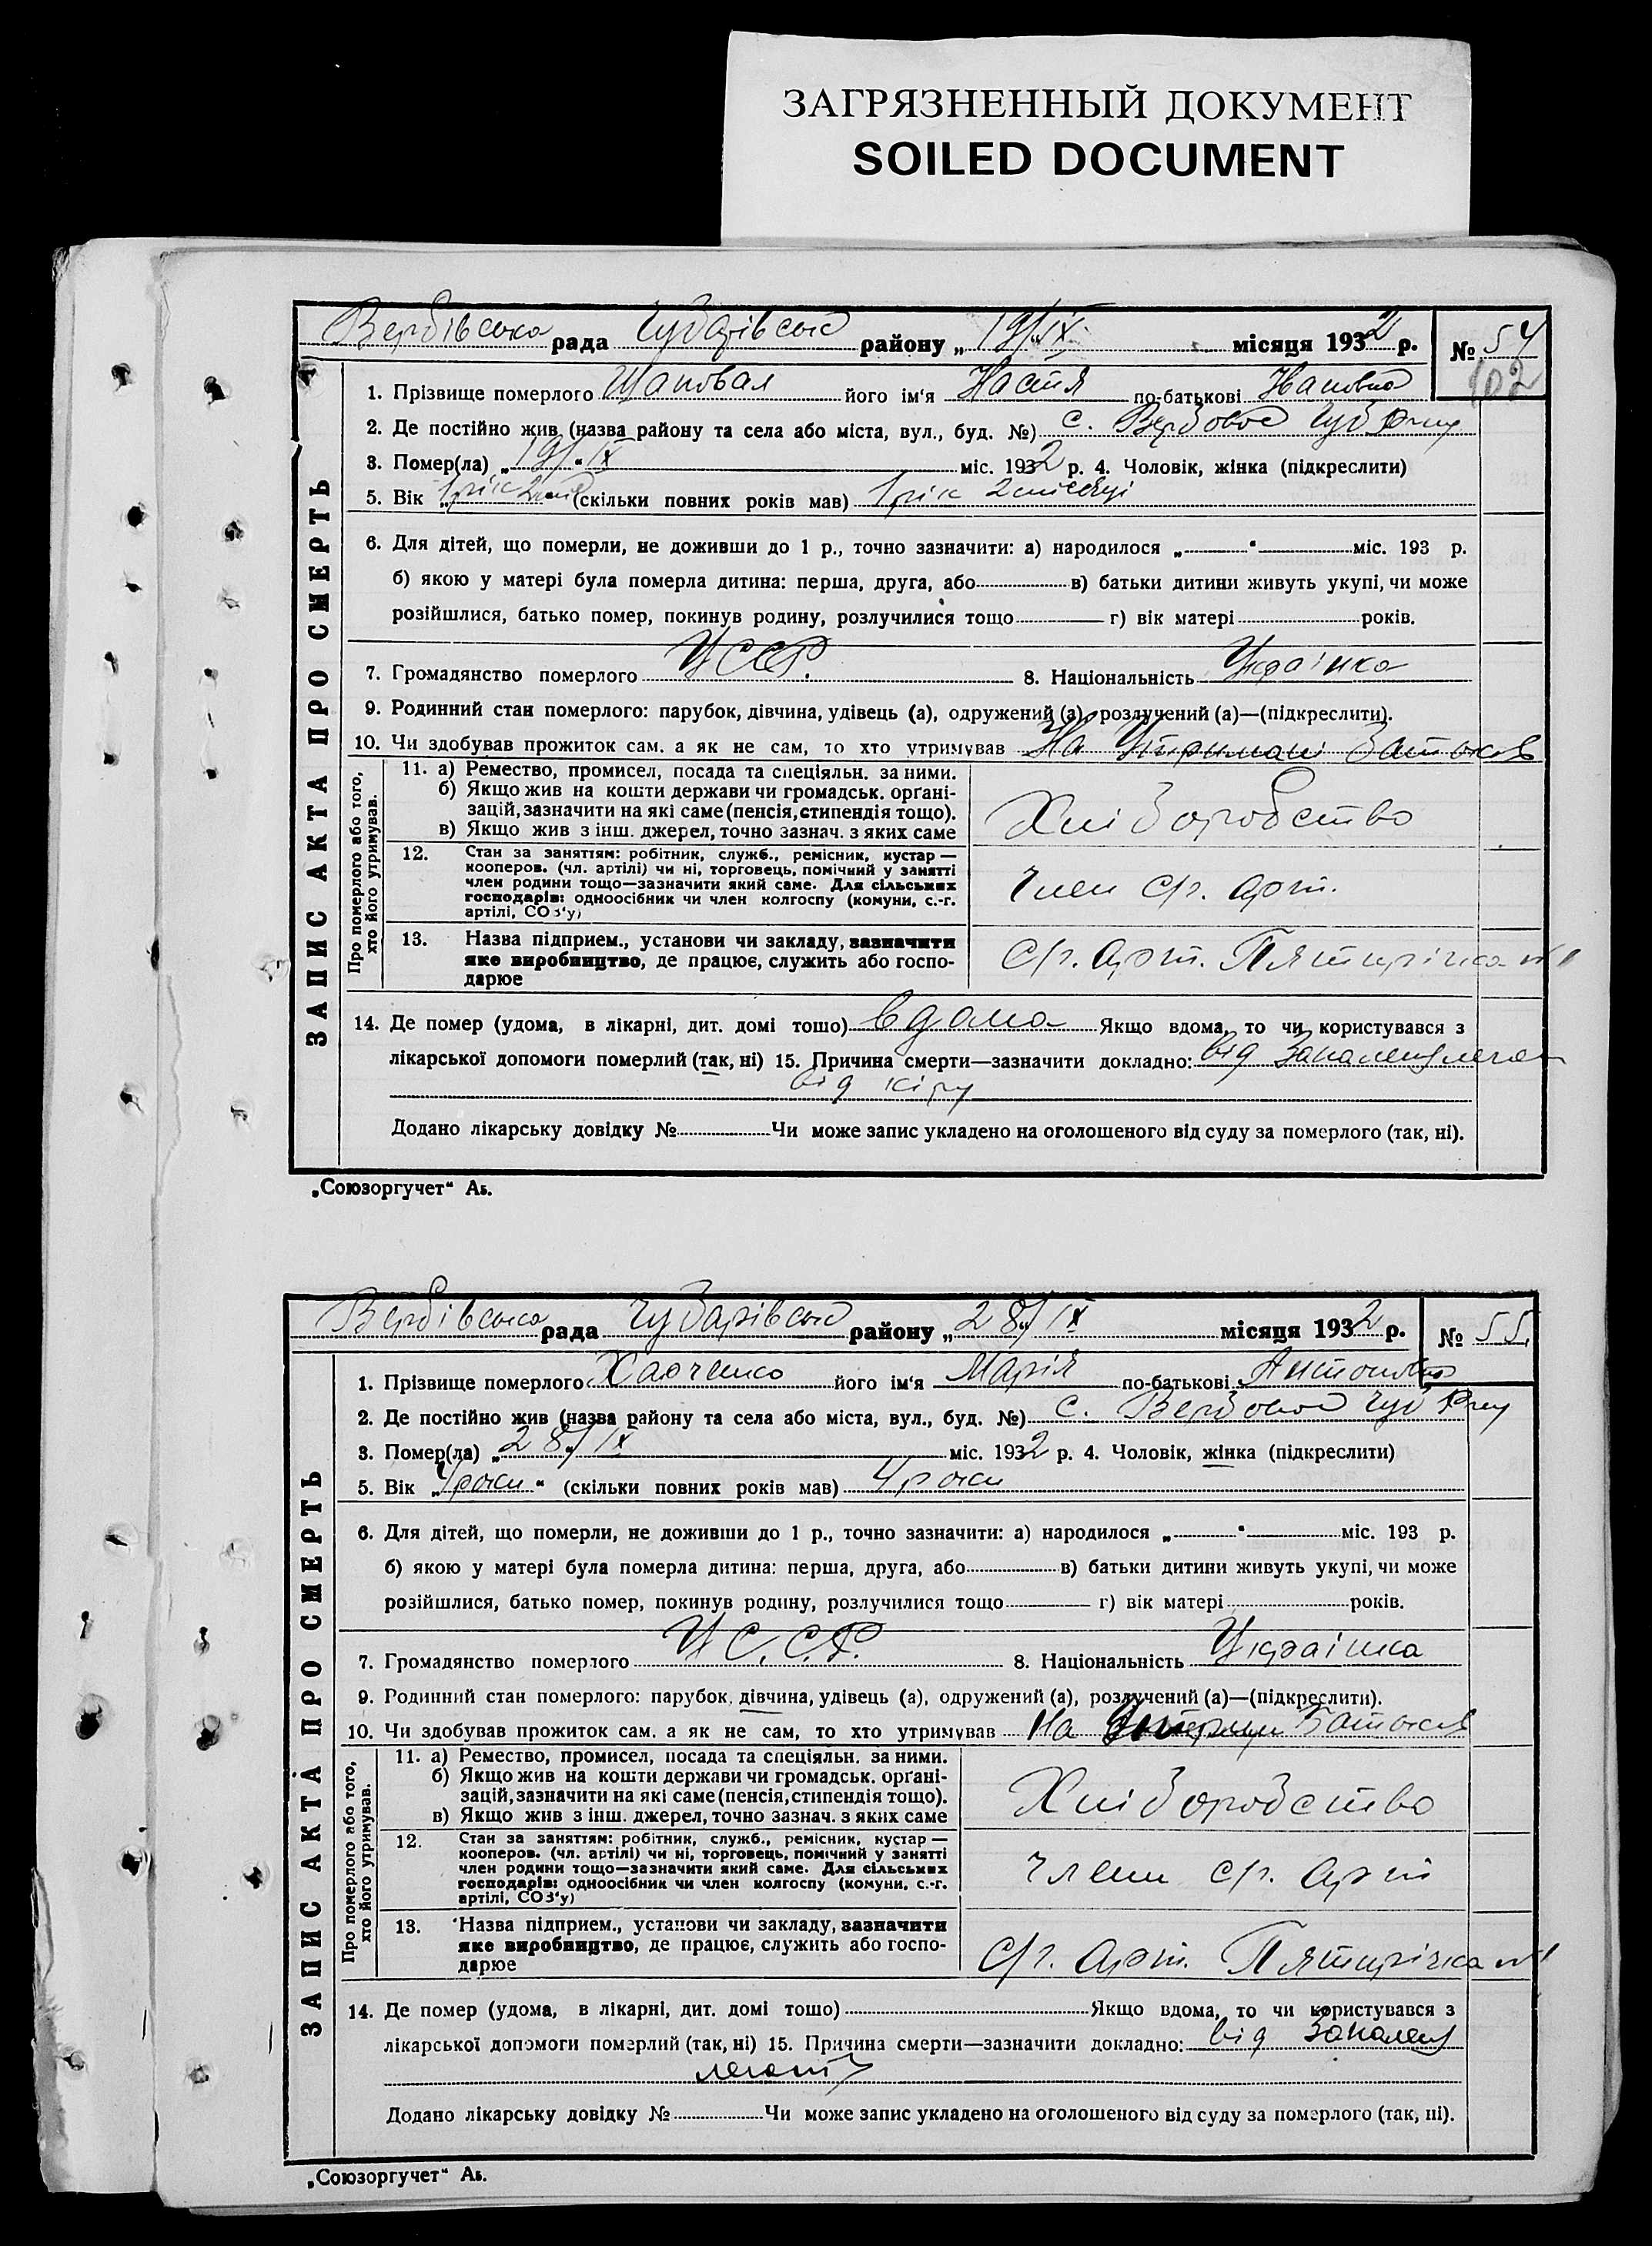 ЗАГРЯЗНЕННЫЙ ДОКУМЕНТ
SOILED DOCUMENT
Вербівська рада Чубарівсько району „ 19/IX місяця 1932 р. № 54
102
ЗАПИС АКТА ПРО СМЕРТЬ
1. Прізвище померлого Шаповал його ім‘я Настя по-батькові Івановна
2. Де постійно жив (назва району та села або міста, вул., буд. №) с. Вербовое Чуб Рну
3. Помер(ла) „ 19/“ IX міс. 1932 р. 4. Чоловік, жінка (підкреслити)
5. Вік „ 1 рік 2 міс (скільки повних років мав) 1 рік 2 місяці
6. Для дітей, що померли, не доживши до 1 р., точно зазначити: а) народилося „ “ міс. 193 р.
б) якою у матері була померла дитина: перша, друга, або в) батьки дитини живуть укупі, чи може
розійшлися, батько помер, покинув родину, розлучилися тощо г) вік матері років.
7. Громадянство померлого УССР. 8. Національність Украінка
9. Родинний стан померлого: парубок, дівчина, удівець (а), одружений (а), розлучений (а)—(підкреслити).
10. Чи здобував прожиток сам, а як не сам, то хто утримував На Утримані Батьков
Про померлого або того, хто його утримував.
11. а) Ремество, промисел, посада та спеціяльн. за ними.
б) Якщо жив на кошти держави чи громадськ. орґані-
зацій, зазначити на які саме (пенсія, стипендія тощо).
в) Якщо жив з інш. джерел, точно зазнач. з яких саме
Хліборобство
12. Стан за заняттям: робітник, служб., ремісник, кустар —
кооперов. (чл. артілі) чи ні, торговець, помічний у занятті
член родини тощо—зазначити який саме. Для сільських
господарів: одноосібник чи член колгоспу (комуни, с.-г.
артілі, СОЗ‘у)
Член с/г. арт.
13. Назва підприєм., установи чи закладу, зазначити
яке виробництво, де працює, служить або госпо-
дарює
с/г. арт. Пятирічка №1
14. Де помер (удома, в лікарні, дит. домі тощо) вдома Якщо вдома, то чи користувався з
лікарської допомоги померлий (так, ні) 15. Причина смерти—зазначити докладно: від Запалену леген
від кіру
Додано лікарську довідку № Чи може запис укладено на оголошеного від суду за померлого (так, ні).
„Союзоргучет“ Аь.
Вербівська рада Чубарівсько району „ 28/IX місяця 1932 р. № 55.
ЗАПИС АКТА ПРО СМЕРТЬ
1. Прізвище померлого Харченко його ім‘я Марія по-батькові Антоновна
2. Де постійно жив (назва району та села або міста, вул., буд. №) с. Вербовое Чуб Рну
3. Помер(ла) „ 28/ IX міс. 1932 р. 4. Чоловік, жінка (підкреслити)
5. Вік „ 4 роки “ (скільки повних років мав) 4 роки
6. Для дітей, що померли, не доживши до 1 р., точно зазначити: а) народилося „ “ міс. 193 р.
б) якою у матері була померла дитина: перша, друга, або в) батьки дитини живуть укупі, чи може
розійшлися, батько помер, покинув родину, розлучилися тощо г) вік матері років.
7. Громадянство померлого У С. С. Р. 8. Національність Украінка
9. Родинний стан померлого: парубок, дівчина, удівець (а), одружений (а), розлучений (а)—(підкреслити).
10. Чи здобував прожиток сам, а як не сам, то хто утримував На Батьков
Про померлого або того, хто його утримував.
11. а) Ремество, промисел, посада та спеціяльн. за ними.
б) Якщо жив на кошти держави чи громадськ. орґані-
зацій, зазначити на які саме (пенсія, стипендія тощо).
в) Якщо жив з інш. джерел, точно зазнач. з яких саме
Хліборобство
12. Стан за заняттям: робітник, служб., ремісник, кустар —
кооперов. (чл. артілі) чи ні, торговець, помічний у занятті
член родини тощо—зазначити який саме. Для сільських
господарів: одноосібник чи член колгоспу (комуни, с.-г.
артілі, СОЗ‘у)
член с/г. арт
13. Назва підприєм., установи чи закладу, зазначити
яке виробництво, де працює, служить або госпо-
дарює
с/г. арт. Пятирічка №1
14. Де помер (удома, в лікарні, дит. домі тощо) Якщо вдома, то чи користувався з
лікарської допомоги померлий (так, ні) 15. Причина смерти—зазначити докладно: від Запалену
Додано лікарську довідку № Чи може запис укладено на оголошеного від суду за померлого (так, ні).
„Союзоргучет“ Аь.